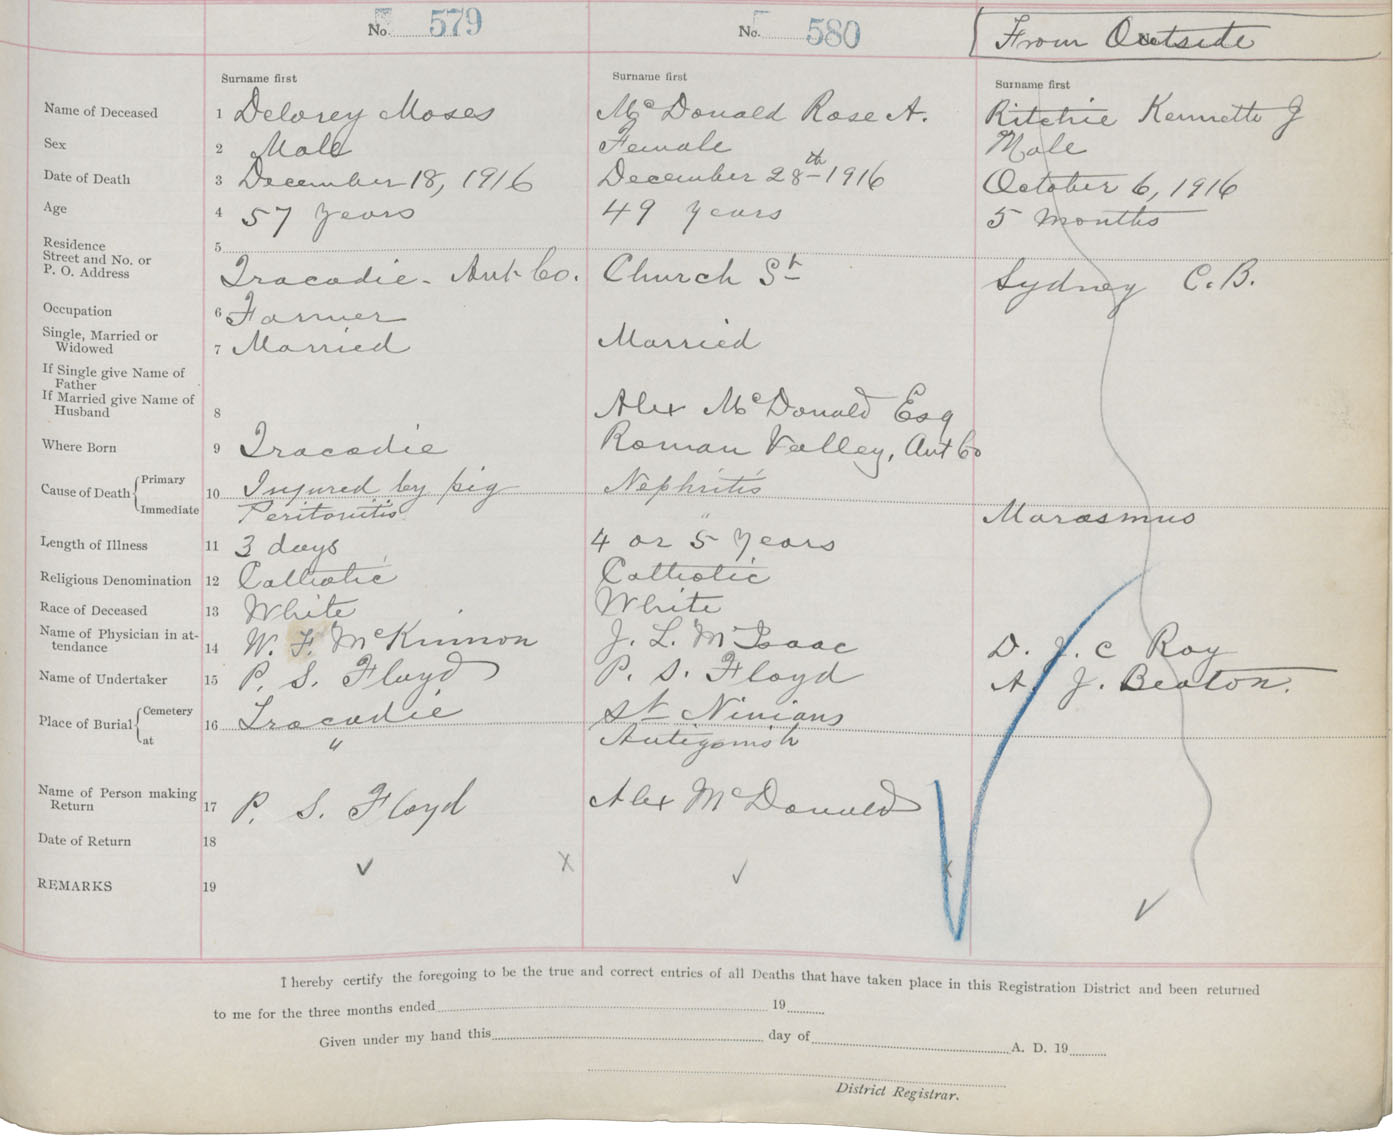 No. 579 No. 580 From Outside
Surname first Surname first Surname first
Name of Deceased 1 Delorey Moses McDonald Rose A. Ritchie Kenneth J
Sex 2 Male Female Male
Date of Death 3 December 18, 1916 December 28th 1916 October 6, 1916
Age 4 57 years 49 years 5 months
Residence 5
Street and No. or
P. O. Address Tracadie - Ant Co. Church St Sydney C.B.
Occupation 6 Farmer
Single, Married or
Widowed 7 Married Married
If Single give Name of
Father
If Married give Name of
Husband 8 Alex McDonald Esq
Where Born 9 Tracadie Roman Valley, Ant Co
Cause of Death Primary 10 Injured by pig Nephritis
Immediate Peritonitis " Marasmus
Length of Illness 11 3 days 4 or 5 years
Religious Denomination 12 Catholic Catholic
Race of Deceased 13 White White
Name of Physician in at-
tendance 14 W. F. McKinnon J. L. McIsaac D. J. C Roy
Name of Undertaker 15 P. S. Floyd P. S. Floyd A. J. Beaton.
Place of Burial Cemetery 16 Tracadie St Ninians
at " Antigonish
Name of Person making
Return 17 P. S. Floyd Alex McDonald
Date of Return 18
REMARKS 19
I hereby certify the foregoing to be the true and correct entries of all Deaths that have taken place in this Registration District and been returned
to me for the three months ended 19
Given under my hand this day of A. D. 19
District Registrar.